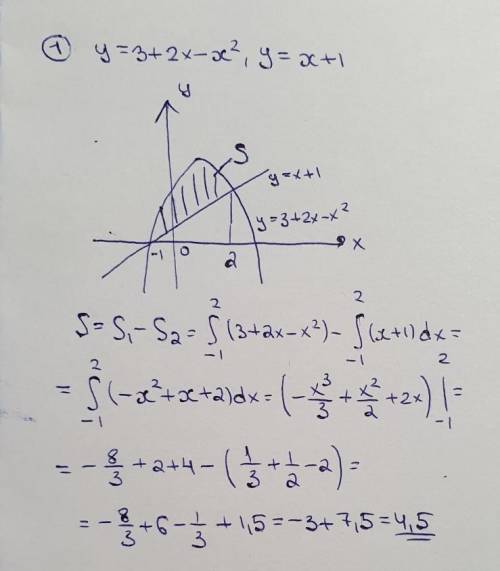 ① y = 3 + 2x − x², y = x + 1
y
S
y = x + 1
y = 3 + 2x − x²
-1 0 2 x
S = S₁ − S₂ = ∫₋₁² (3 + 2x − x²) − ∫₋₁² (x + 1) dx =
= ∫₋₁² (−x² + x + 2) dx = (−x³/3 + x²/2 + 2x) |₋₁² =
= −8/3 + 2 + 4 − (1/3 + 1/2 − 2) =
= −8/3 + 6 − 1/3 + 1,5 = −3 + 7,5 = 4,5